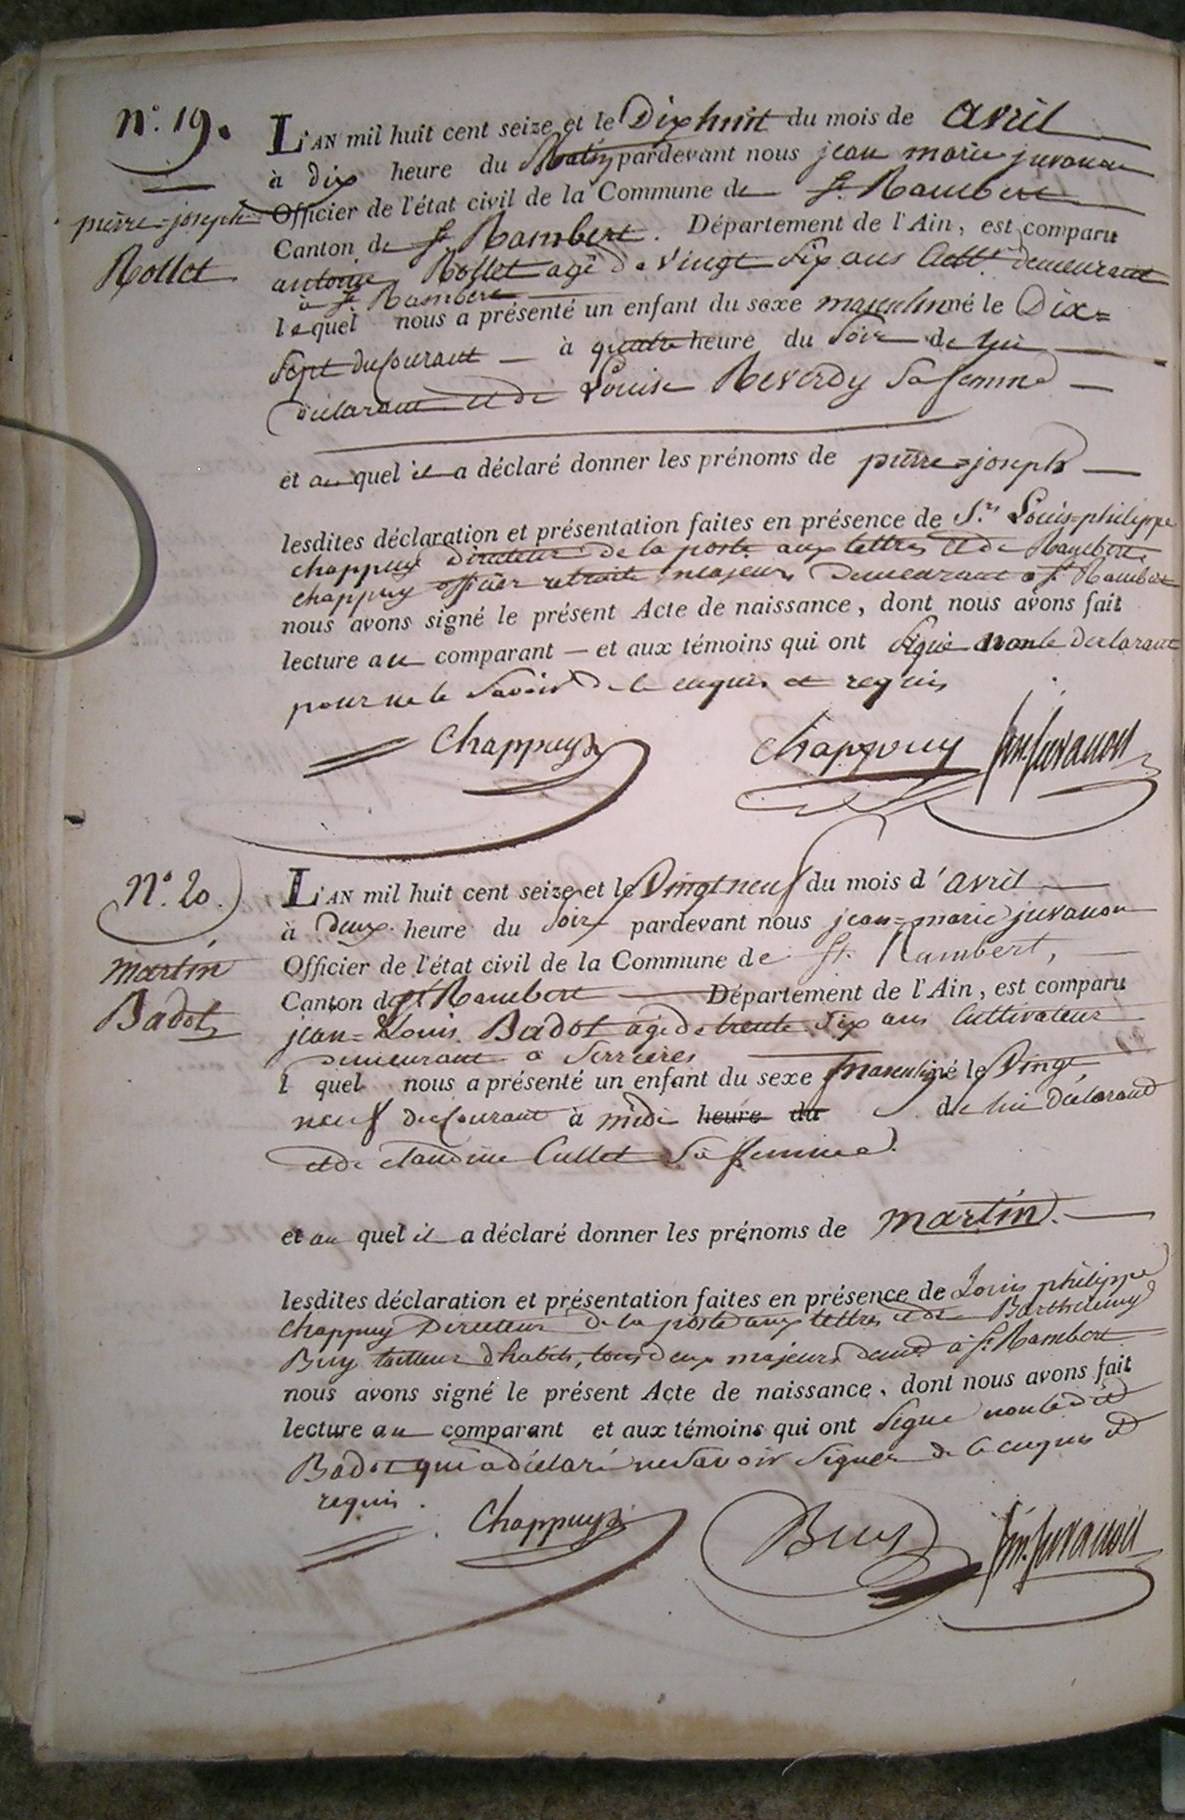 N.° 19.
pierre=joseph
Rollet
L'AN mil huit cent seize et le Dixhuit du mois de avril
à dix heure du Matin pardevant nous jean marie juvanon
Officier de l'état civil de la Commune de St. Rambert
Canton de St. Rambert. Département de l'Ain, est comparu
antoine Rollet agé de vingt Six ans Cult.r demeurant
à St. Rambert
lequel nous a présenté un enfant du sexe masculin né le Dix=
Sept du Courant à quatre heure du Soir de lui
déclarant et de Louise Reverdy Sa femme
et auquel il a déclaré donner les prénoms de pierre=joseph
lesdites déclaration et présentation faites en présence de S.rs Louis=philippe
chappuy Directeur de la poste aux lettres et de Rambert
chappuy officier retraité majeurs Demeurant à St Rambert
nous avons signé le présent Acte de naissance, dont nous avons fait
lecture au comparant — et aux témoins qui ont Signé non le Déclarant
pour ne le Savoir de ce enquis et requis
Chappuy Chappuy jm. juvanon
N.° 20.
martin
Badot
L'AN mil huit cent seize et le Vingt neuf du mois d'avril
à Deux heure du Soir pardevant nous jean=marie juvanon
Officier de l'état civil de la Commune de St. Rambert,
Canton de St Rambert Département de l'Ain, est comparu
jean=Louis Badot agé de trente Six ans Cultivateur
Demeurant à Serrieres
l quel nous a présenté un enfant du sexe masculin né le Vingt
neuf du Courant à midi heure du de lui Déclarant
et de claudine Cullet Sa femme.
et au quel il a déclaré donner les prénoms de martin.
lesdites déclaration et présentation faites en présence de Louis philippe
Chappuy Directeur de la poste aux lettres et de Barthelemy
Buy tailleur d'habits, tous deux majeurs dem.t à St. Rambert
nous avons signé le présent Acte de naissance, dont nous avons fait
lecture au comparant et aux témoins qui ont Signé non led it
Badot qui a déclaré ne Savoir Signer de ce enquis et
requis.
Chappuy Buy jm. juvanon